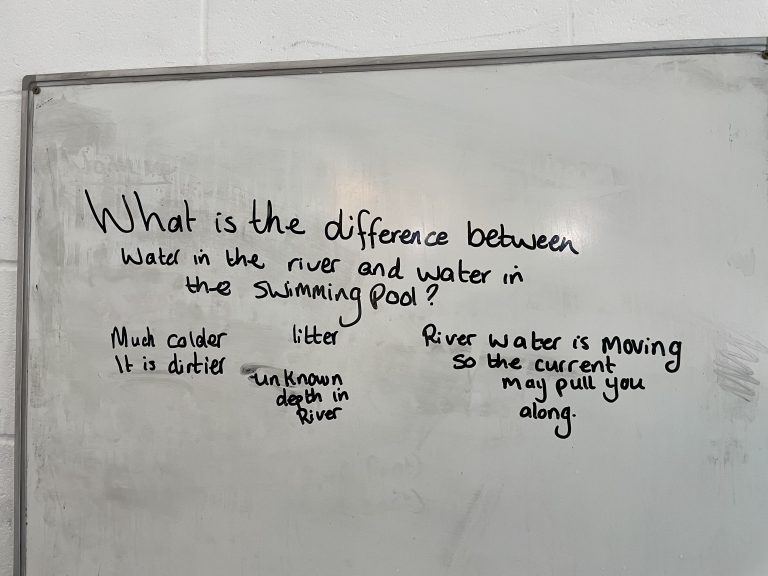 What is the difference between
Water in the river and water in
the swimming pool?
Much colder
It is dirtier
litter
unknown
depth in
River
River water is moving
so the current
may pull you
along.